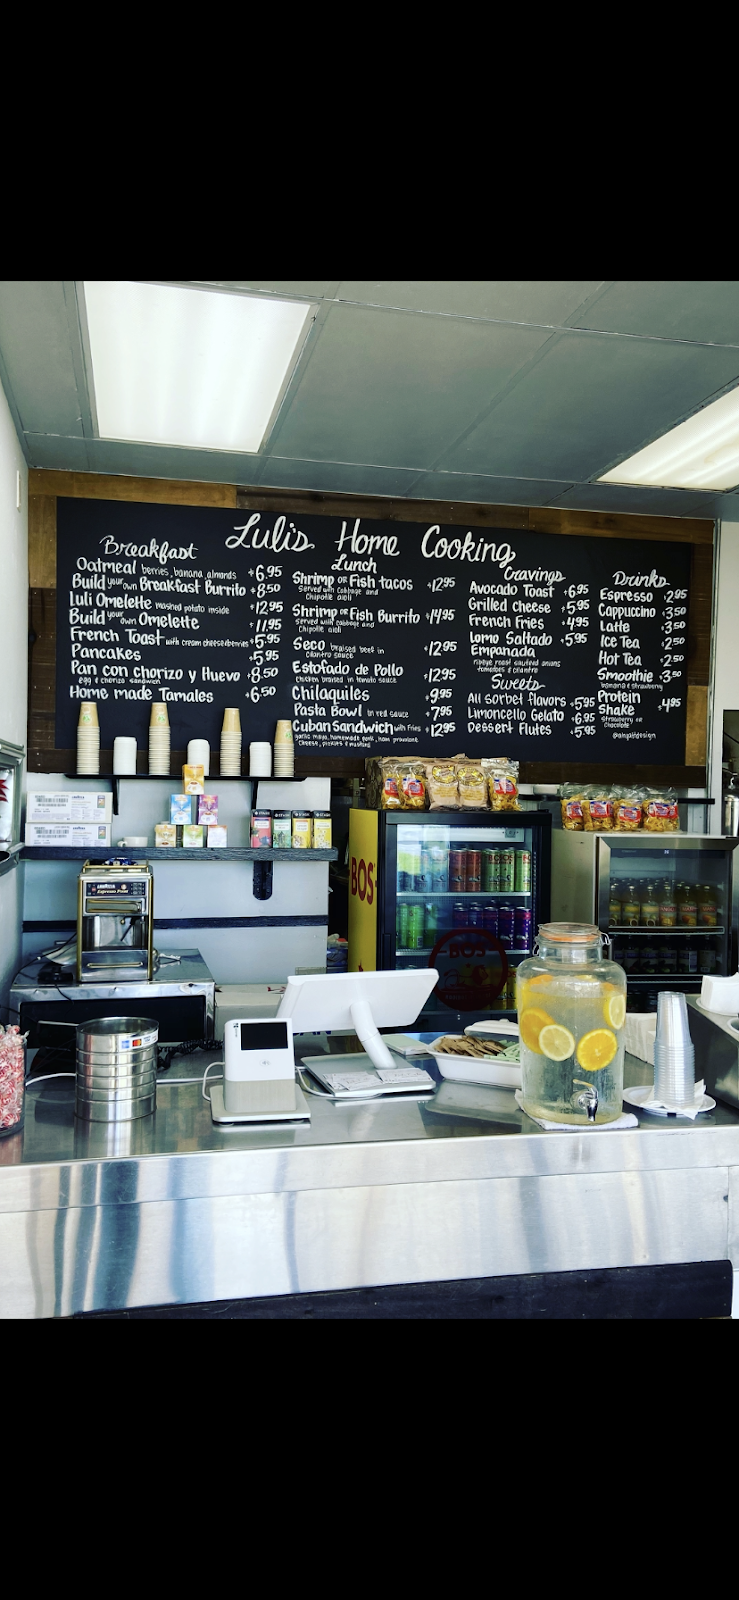 Luli's Home Cooking
Breakfast
Oatmeal berries, banana, almonds $6.95
Build your own Breakfast Burrito $8.50
Luli Omelette mashed potato inside $12.95
Build your own Omelette $11.95
French Toast with cream cheese berries $5.95
Pancakes $5.95
Pan con chorizo y Huevo $8.50
egg & chorizo sandwich
Home made Tamales $6.50
Lunch
Shrimp or Fish tacos $12.95
Served with Cabbage and
Chipotle aioli
Shrimp or Fish Burrito $14.95
served with cabbage and
Chipotle aioli
Seco braised beef in $12.95
cilantro sauce
Estofado de Pollo $12.95
chicken braised in tomato sauce
Chilaquiles $9.95
Pasta Bowl in red sauce $7.95
Cuban Sandwich with Fries $12.95
garlic mayo, homemade pork, ham provolone
cheese, pickles & mustard
Cravings
Avocado Toast $6.95
Grilled cheese $5.95
French Fries $4.95
Lomo Saltado $5.95
Empanada
ribeye roast sauteed onions
tomatoes & cilantro
Sweets
All sorbet flavors $5.95
Limoncello Gelato $6.95
Dessert Flutes $5.95
Drinks
Espresso $2.95
Cappuccino $3.50
Latte $3.50
Ice Tea $2.50
Hot Tea $2.50
Smoothie $3.50
banana & strawberry
Protein
Shake $4.95
Strawberry or
Chocolate
BOS
BOS
LAVAZZA